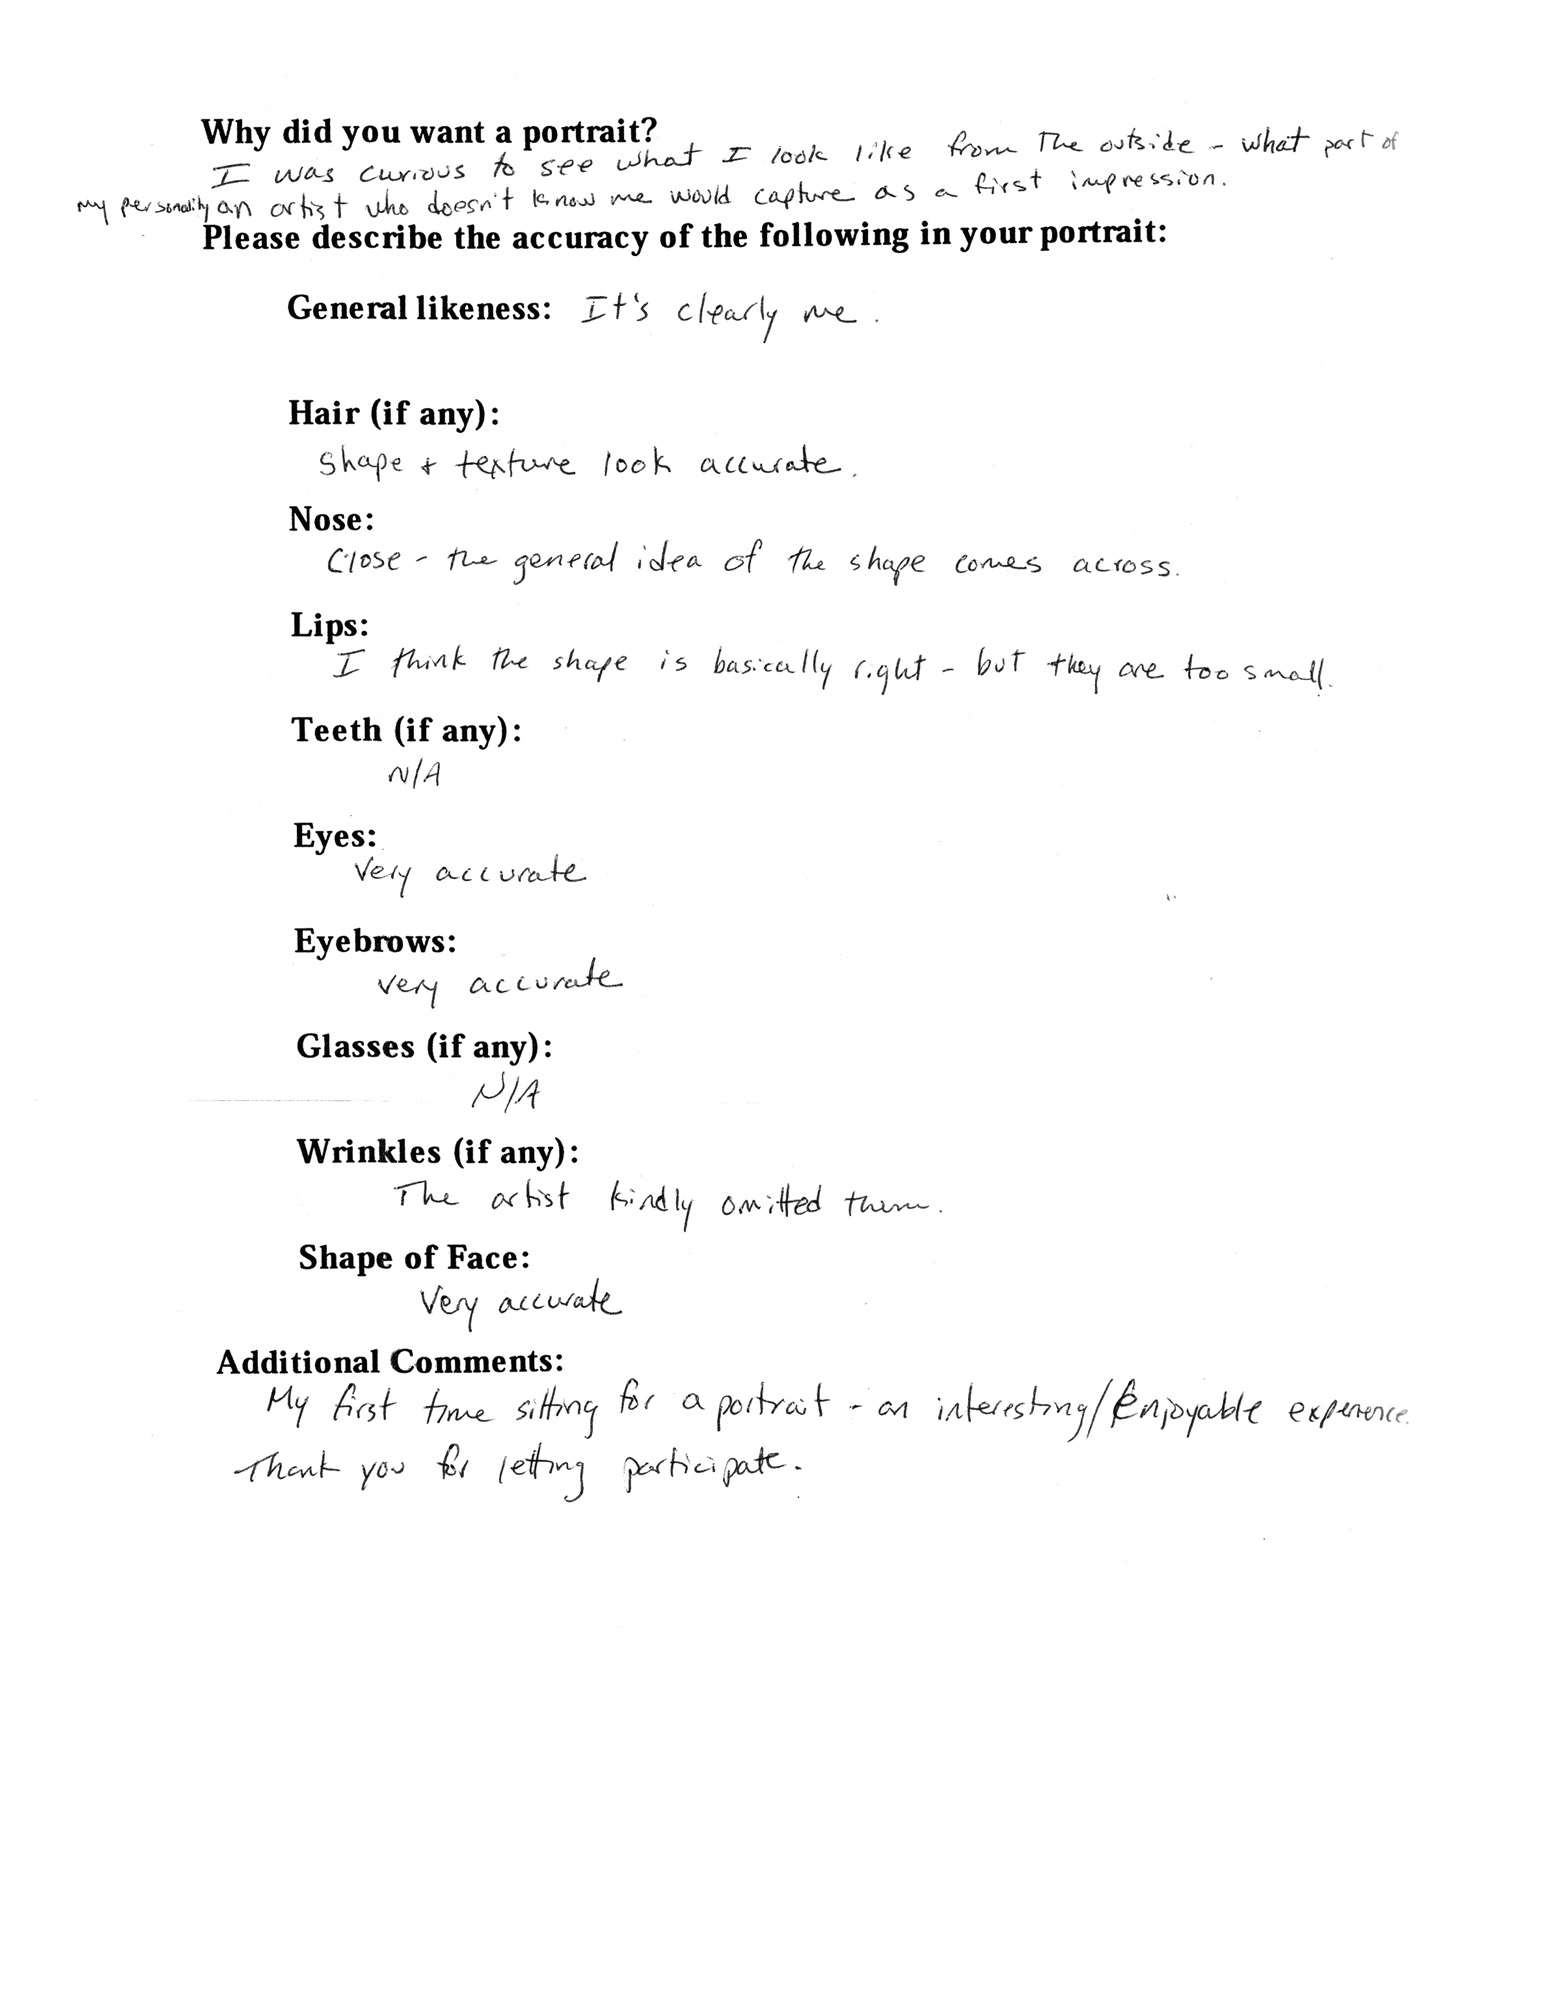 Why did you want a portrait?
I was curious to see what I look like from the outside - what part of
my personality an artist who doesn't know me would capture as a first impression.
Please describe the accuracy of the following in your portrait:
General likeness: It's clearly me.
Hair (if any):
Shape + texture look accurate.
Nose:
Close - the general idea of the shape comes across.
Lips:
I think the shape is basically right - but they are too small.
Teeth (if any):
N/A
Eyes:
Very accurate
Eyebrows:
very accurate
Glasses (if any):
N/A
Wrinkles (if any):
The artist kindly omitted them.
Shape of Face:
Very accurate
Additional Comments:
My first time sitting for a portrait - an interesting/Enjoyable experience.
Thank you for letting participate.